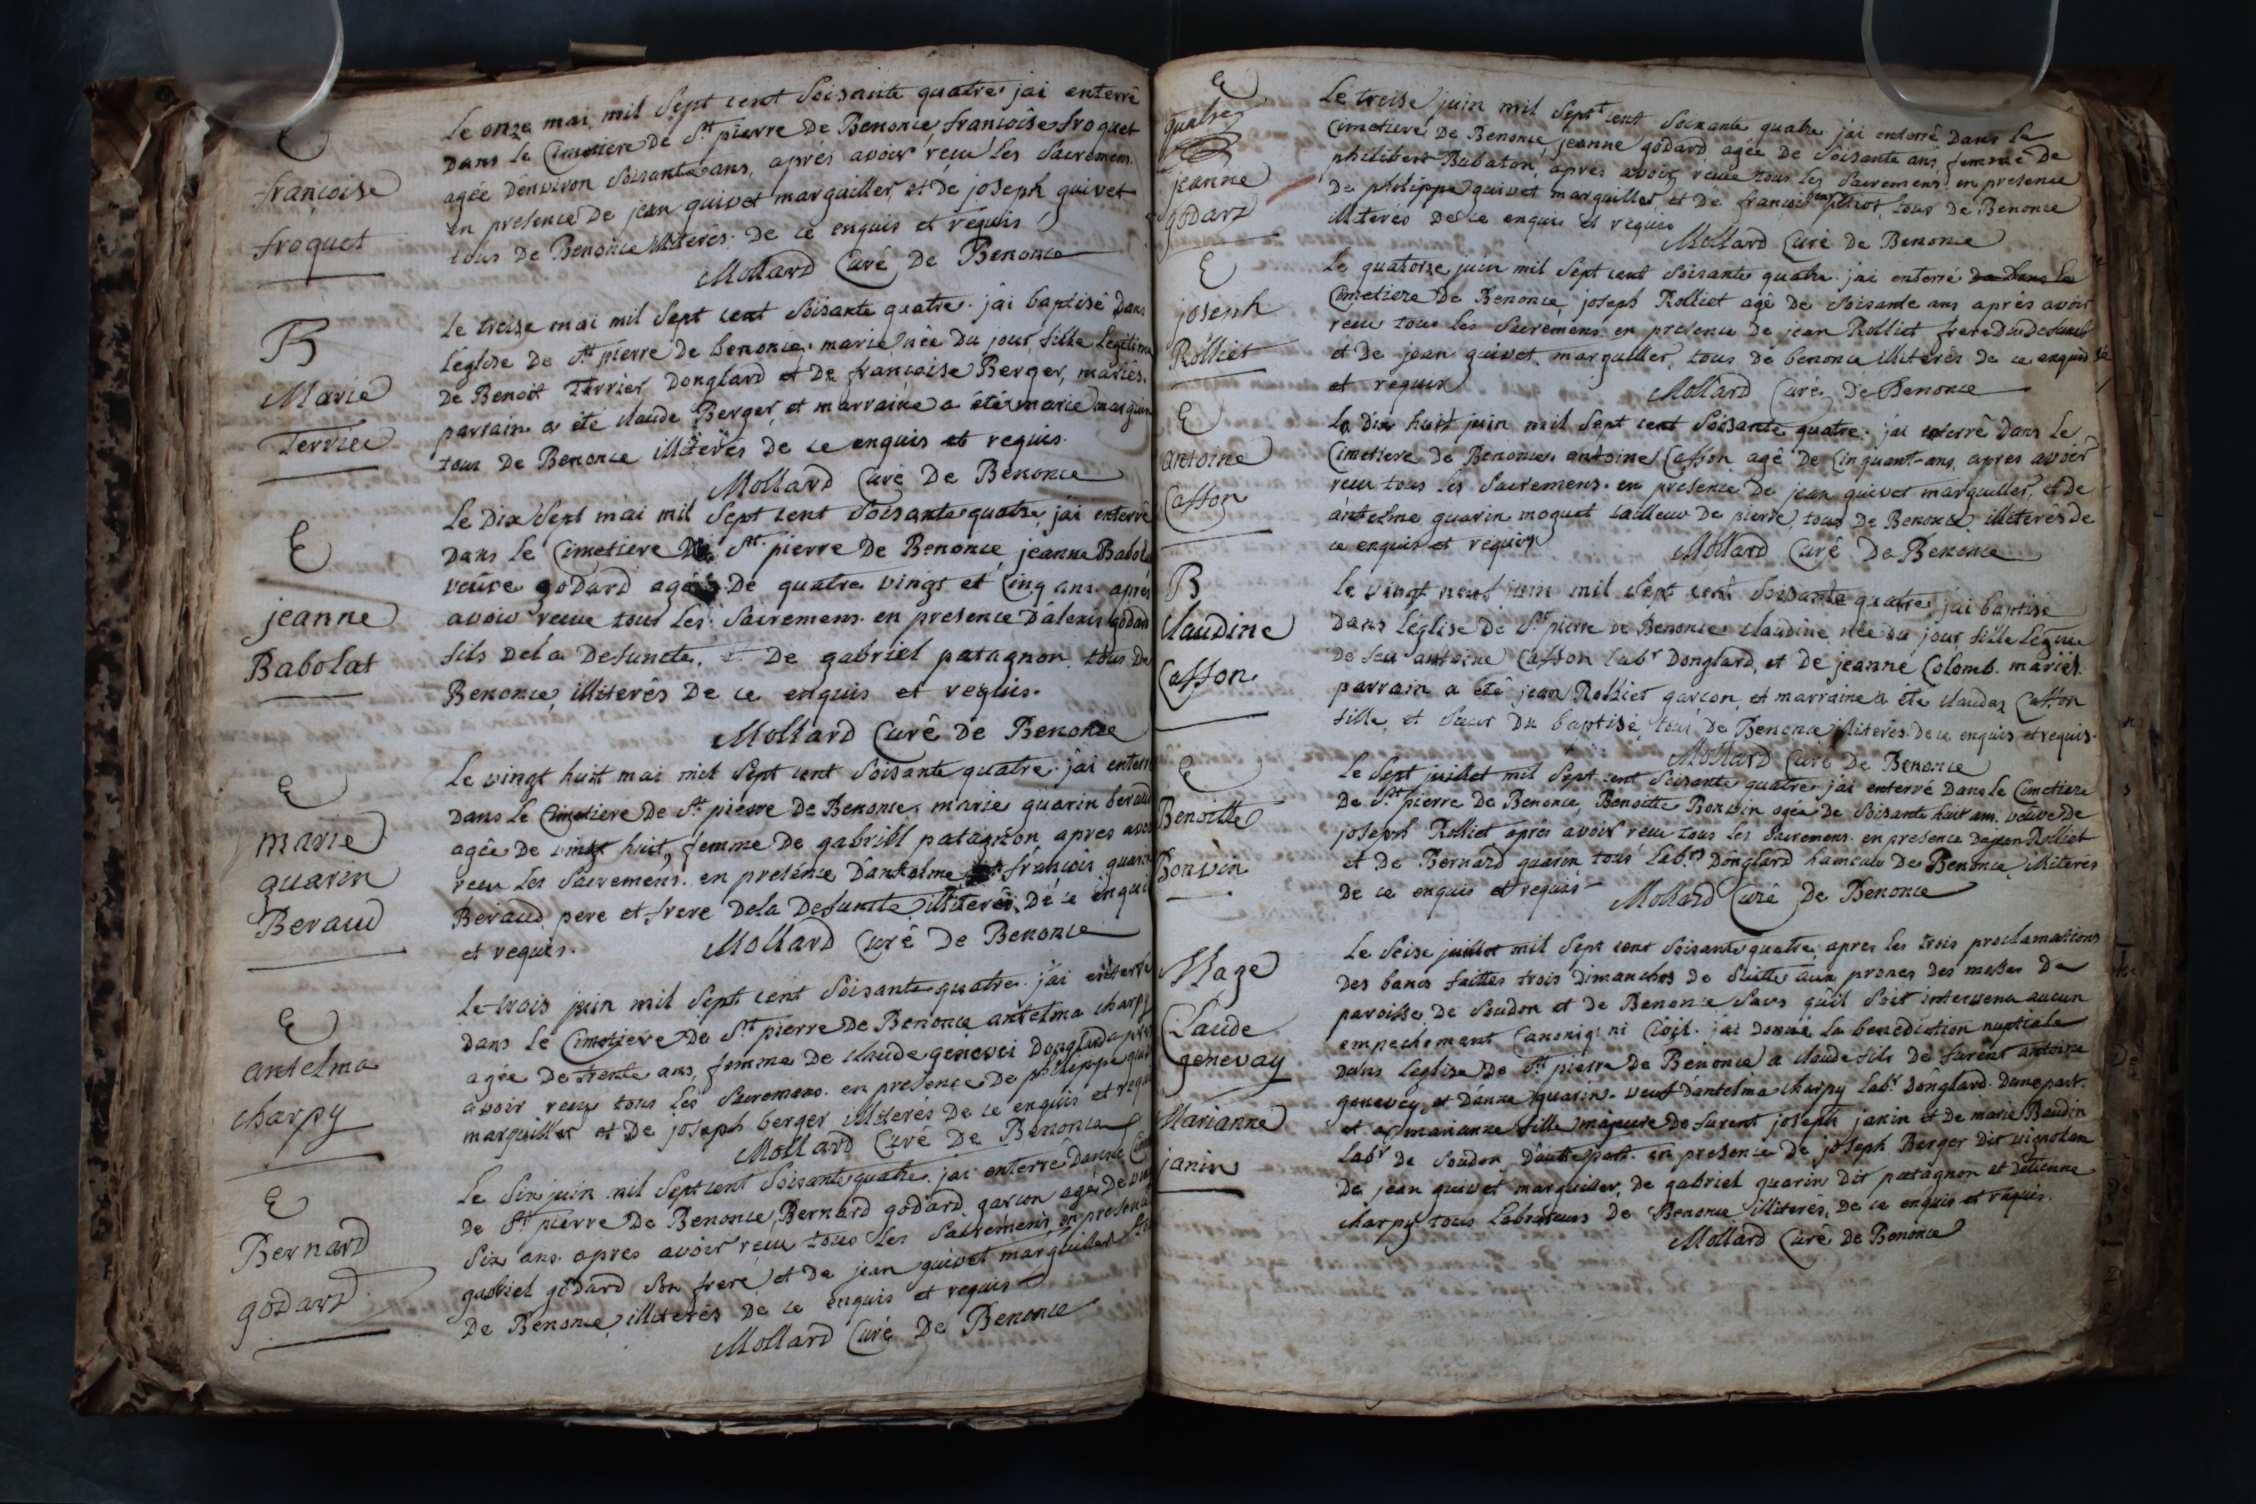 E
françoise
froquet
Le onze mai mil Sept cent Soisante quatre jai enterré
dans le Cimetiere de St pierre de Benonce francoise froquet
agée denviron soisante ans, aprés avoir reçu les Sacremens.
en presence de jean quivet marguiller, et de joseph quivet
tous de Benonce illiterés. de ce enquis et requis
Mollard Curé de Benonce
B
Marie
Terrier
Le treise mai mil Sept cent Soisante quatre. jài baptisé dans
Léglise de St pierre de benonce. marie née du jour fille Legitime
de Benoit Terrier Donglard et de françoise Berger, mariés.
parrain a été claude Berger, et marraine a été marie
tous de Benonce illiterés de ce enquis et requis.
Mollard Curé de Benonce
E
jeanne
Babolat
Le dix Sept mai mil Sept cent Soisante quatre, jài enterré
dans le Cimetiere de St. pierre de Benonce, jeanne
veuve godard agée de quatre vingt et Cinq ans. aprés
avoir reçue tous les Sacremens. en presence dàlexis
fils dela defuncte. et De gabriel patagnon. tous de
Benonce, illiterés de ce enquis et requis.
Mollard Curé de Benonce
E
marie
quarin
Beraud
Le vingt huit mai mil Sept cent Soisante quatre. jài
dans le Cimetiere de St pierre de Benonce. marie quarin
agée de vingt huit, femme de gabriel patagnon apres
reçu les Sacremens. en presence dàntelme et françois
Beraud pere et frere dela defuncte, illiterés, de ce
et requis.
Mollard Curé de Benonce
E
antelma
charpy
Le trois juin mil Sept cent Soisante quatre. jài enterré
dans le Cimetiere de St pierre de Benonce antelma charpy
agée de trente ans, femme de claude genevei Donglard
avoir reçu tous les Sacremens. en presence de philippe
marguiller et de joseph berger illiterés de ce enquis et
Mollard Curé de Benonce
E
Bernard
godard
Le Six juin mil Sept cent Soisante quatre. jai enterré
de St pierre de Benonce, Bernard godard, garcon agé de
Six ans. apres avoir reçu tous les Sacremens en
gabriel godard son frere, et de jean quivet marguiller
de Benonce, illiterés de ce enquis et requis
Mollard Curé de Benonce
E
jeanne
godard
Le treise juin mil Sept cent Soixante quatre jai enterré dans le
Cimetiere de Benonce, jeanne godard agée de Soisante ans, femme de
philibert Babaton, aprés avoir reçue tous les Sacremens en presence
de philippe quivet marguiller, et de françois tous de Benonce
illiterés de ce enquis et requis
Mollard Curé de Benonce
E
joseph
Rolliet
Le quatorse juin mil Sept cent Soisante quatre. jai enterré dans le
Cimetiere de Benonce, joseph Rolliet agé de Soisante ans aprés avoir
reçu tous les Sacremens. en presence de jean Rolliet frere du defunct
et de jean quivet marguiller, tous de benonce illiterés de ce enquis
et requis
Mollard Curé de Benonce
E
antoine
Casson
Le dix huit juin mil Sept cent Soisante quatre. jai enterré dans le
Cimetiere de Benonce. antoine Casson agé de Cinquant-ans, apres avoir
reçu tous les Sacremens. en presence de jean quivet marguiller, et de
àntelme quarin moquet tailleur de pierre, tous de Benonce, illiterés de
ce enquis et requis
Mollard Curé de Benonce
B
Claudine
Casson.
Le vingt neuf juin mil Sept cent Soisante quatre, jai baptisé
dans Leglise de St pierre de Benonce. claudine née du jour, fille
de feu antoine Casson labr Donglard, et de jeanne Colomb. mariés.
parrain a été jean Rolliet garcon, et marraine a été claudaz Casson
fille, et Sœur du baptisé, tous de Benonce illiterés de ce enquis et requis.
Mollard Curé de Benonce
E
Benoitte
Bonvin
Le Sept juillet mil Sept cent Soisante quatre. jai enterré dans le Cimetiere
de St pierre de Benonce, Benoitte Bonvin agée de Soisante huit ans. veuve de
joseph Rolliet aprés avoir reçu tous les Sacremens. en presence de jean Rolliet
et de Bernard quarin tous labrs Donglard hameau de Benonce, illiterés
de ce enquis et requis
Mollard Curé de Benonce
Mage
Claude
genevay
Marianne
janin
Le Seise juillet mil Sept cent Soisante quatre, apres les trois proclamations
des bancs faittes trois dimanches de Suitte aux prones des messes de
paroisse de Soudon et de Benonce Sans quil Soit intervenu aucun
empechement Canoniq: ni Civil. jai donné la benediction nuptiale
dans Leglise de St pierre de Benonce a claude fils de furent antoine
genevey, et danne quarin. veuf dàntelma charpy labr donglard. dune part.
et a marianne fille majeure de furent joseph janin et de marie Baudin
labr de Soudon dautre part. en presence de joseph Berger dit vignolan
de jean quivet marguiller, de gabriel quarin dit patagnon et detienne
charpy tous laboureurs de Benonce illiterés, de ce enquis et requis.
Mollard Curé de Benonce